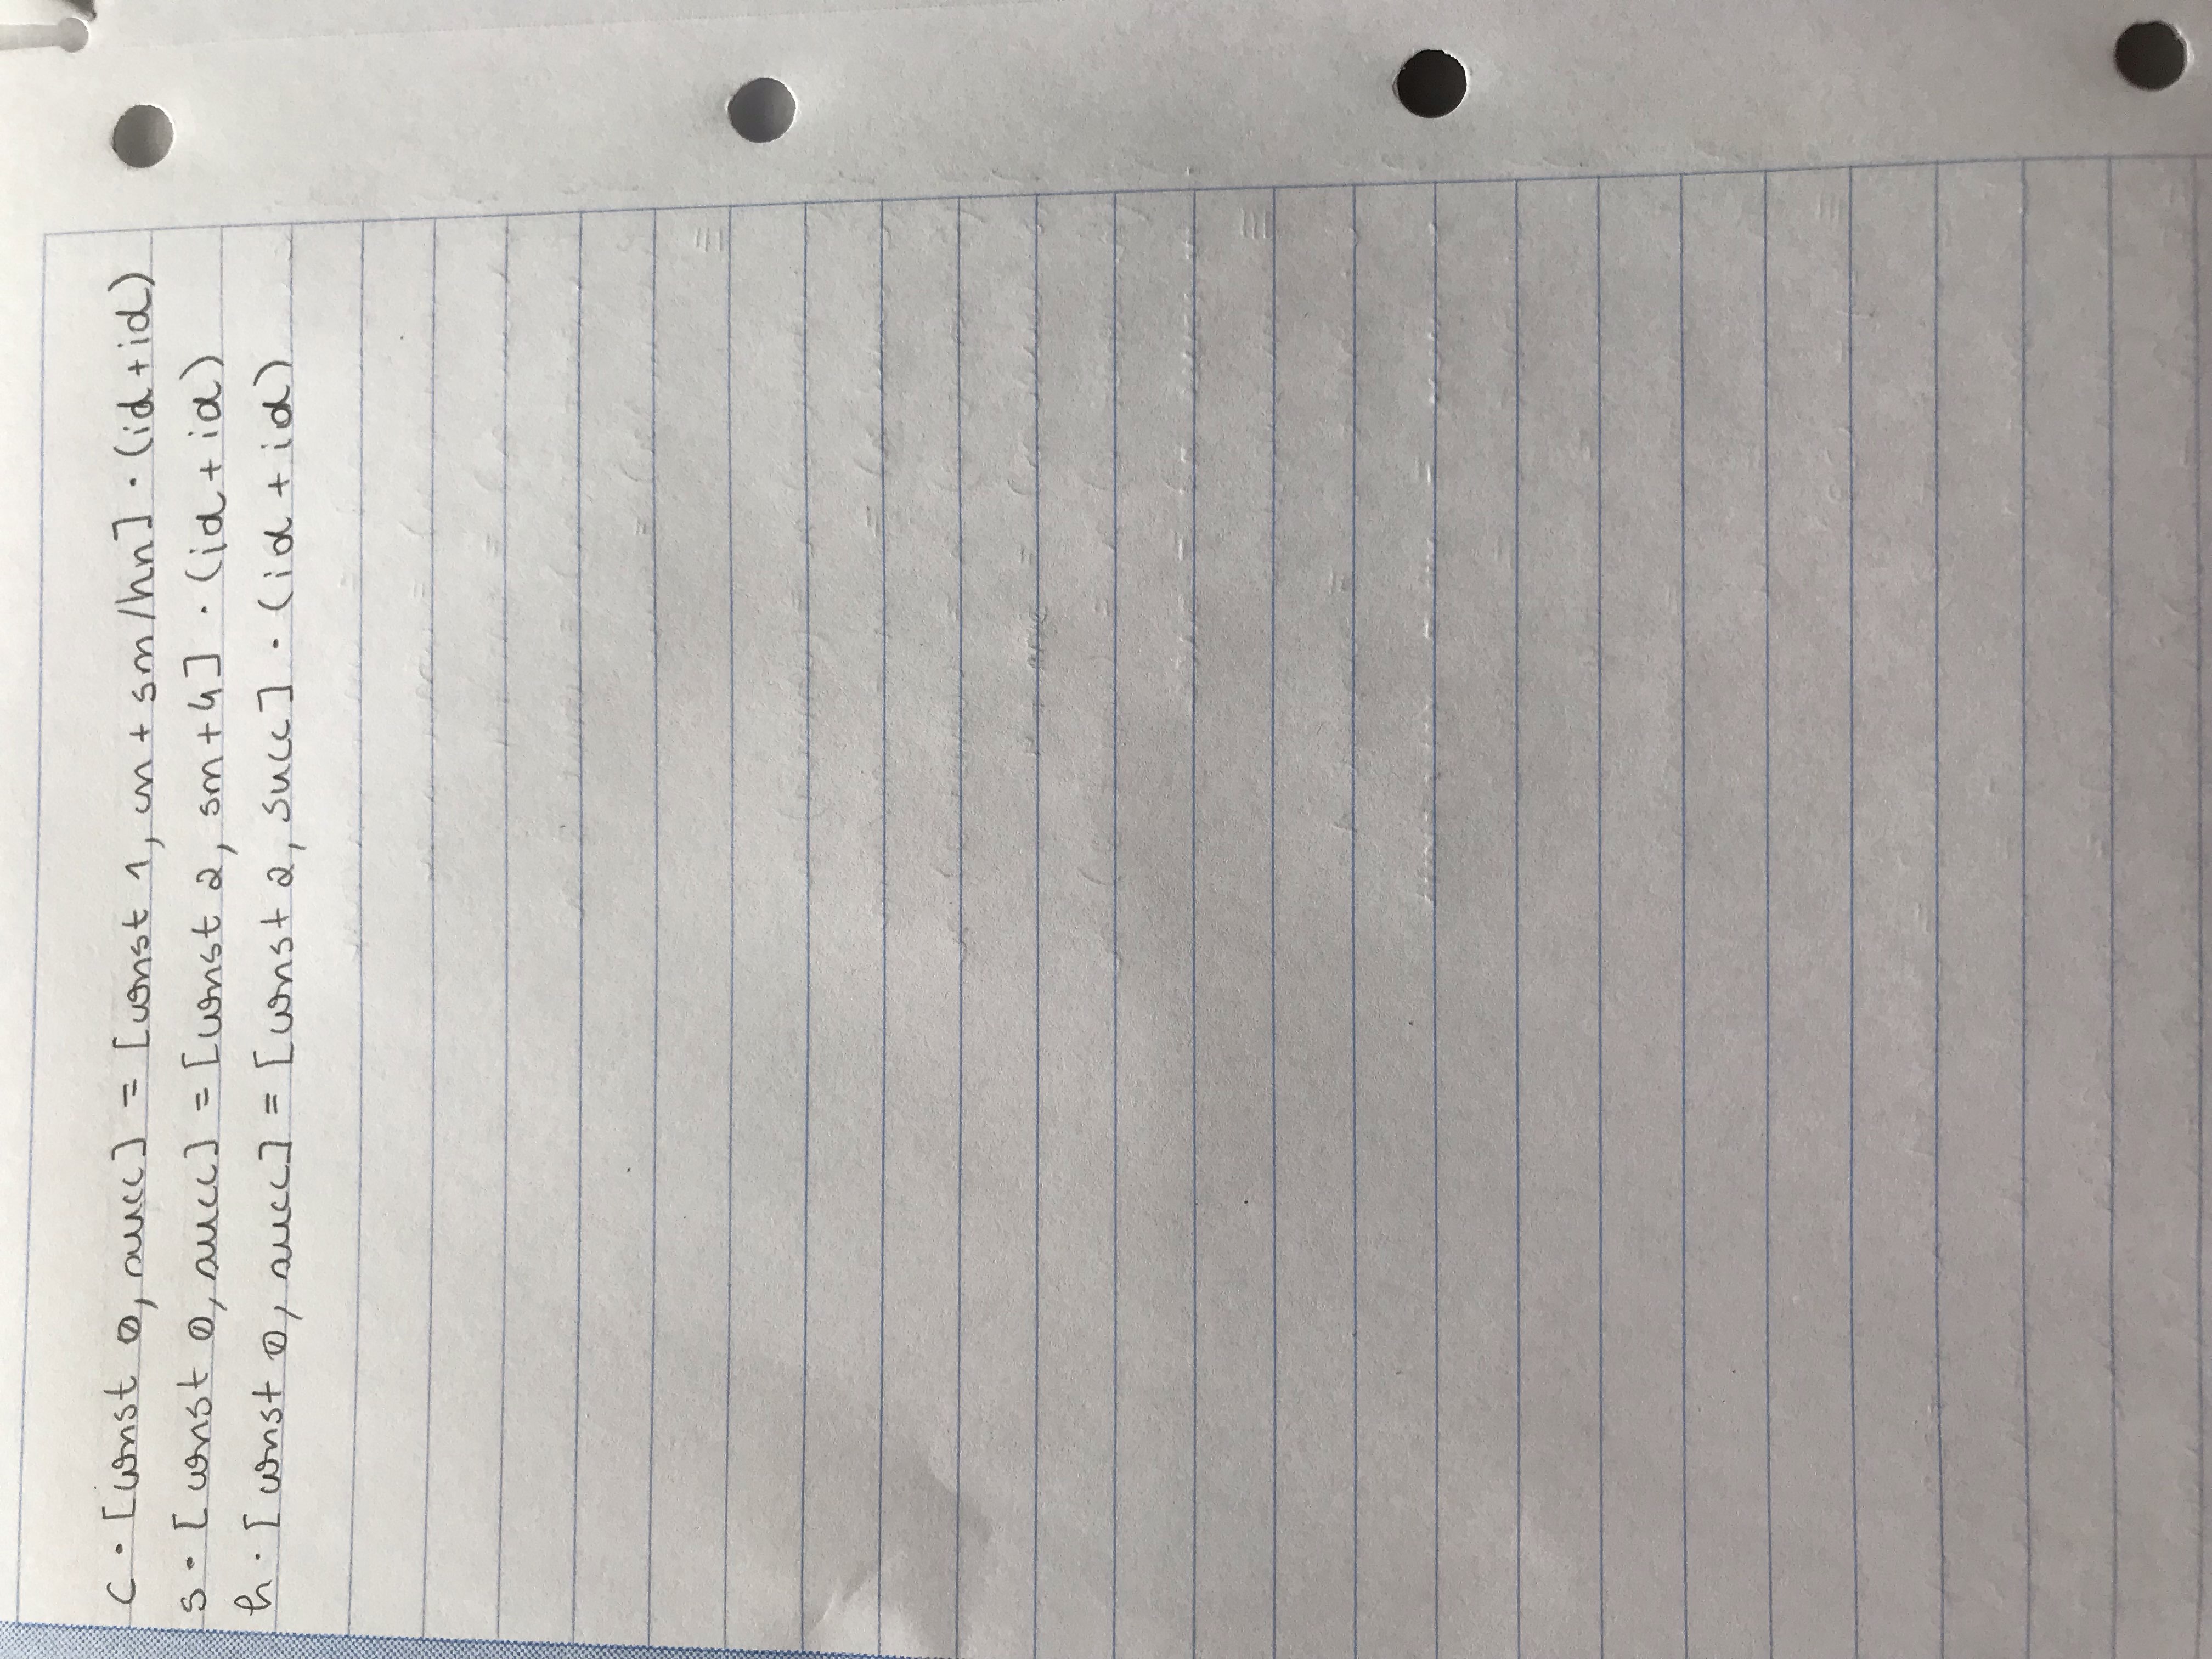 c · [const 0, succ] = [const 1, cn + sn/hn] · (id + id)
s · [const 0, succ] = [const 2, sn + 4] · (id + id)
h · [const 0, succ] = [const 2, succ] · (id + id)